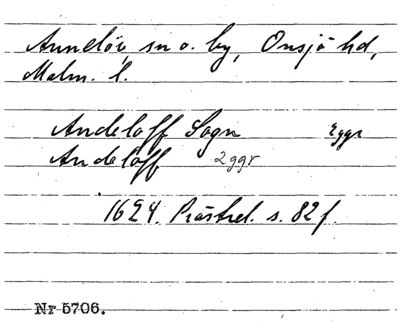 Annelöv, sn o. by, Onsjö hd,
Malm. l.
Andeloff Sogn 2ggr
Andelöff 2ggr
1624. Prästrel. s. 82 f.
Nr 5706.